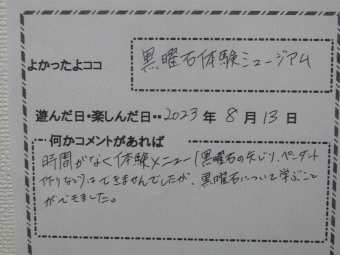 よかったよココ 黒曜石体験ミュージアム
遊んだ日・楽しんだ日・・2023年 8月 13日
何かコメントがあれば
時間がなく体験メニュー(黒曜石の矢じり、ペンダント
作りなど)はできませんでしたが、黒曜石について学ぶこと
ができました。